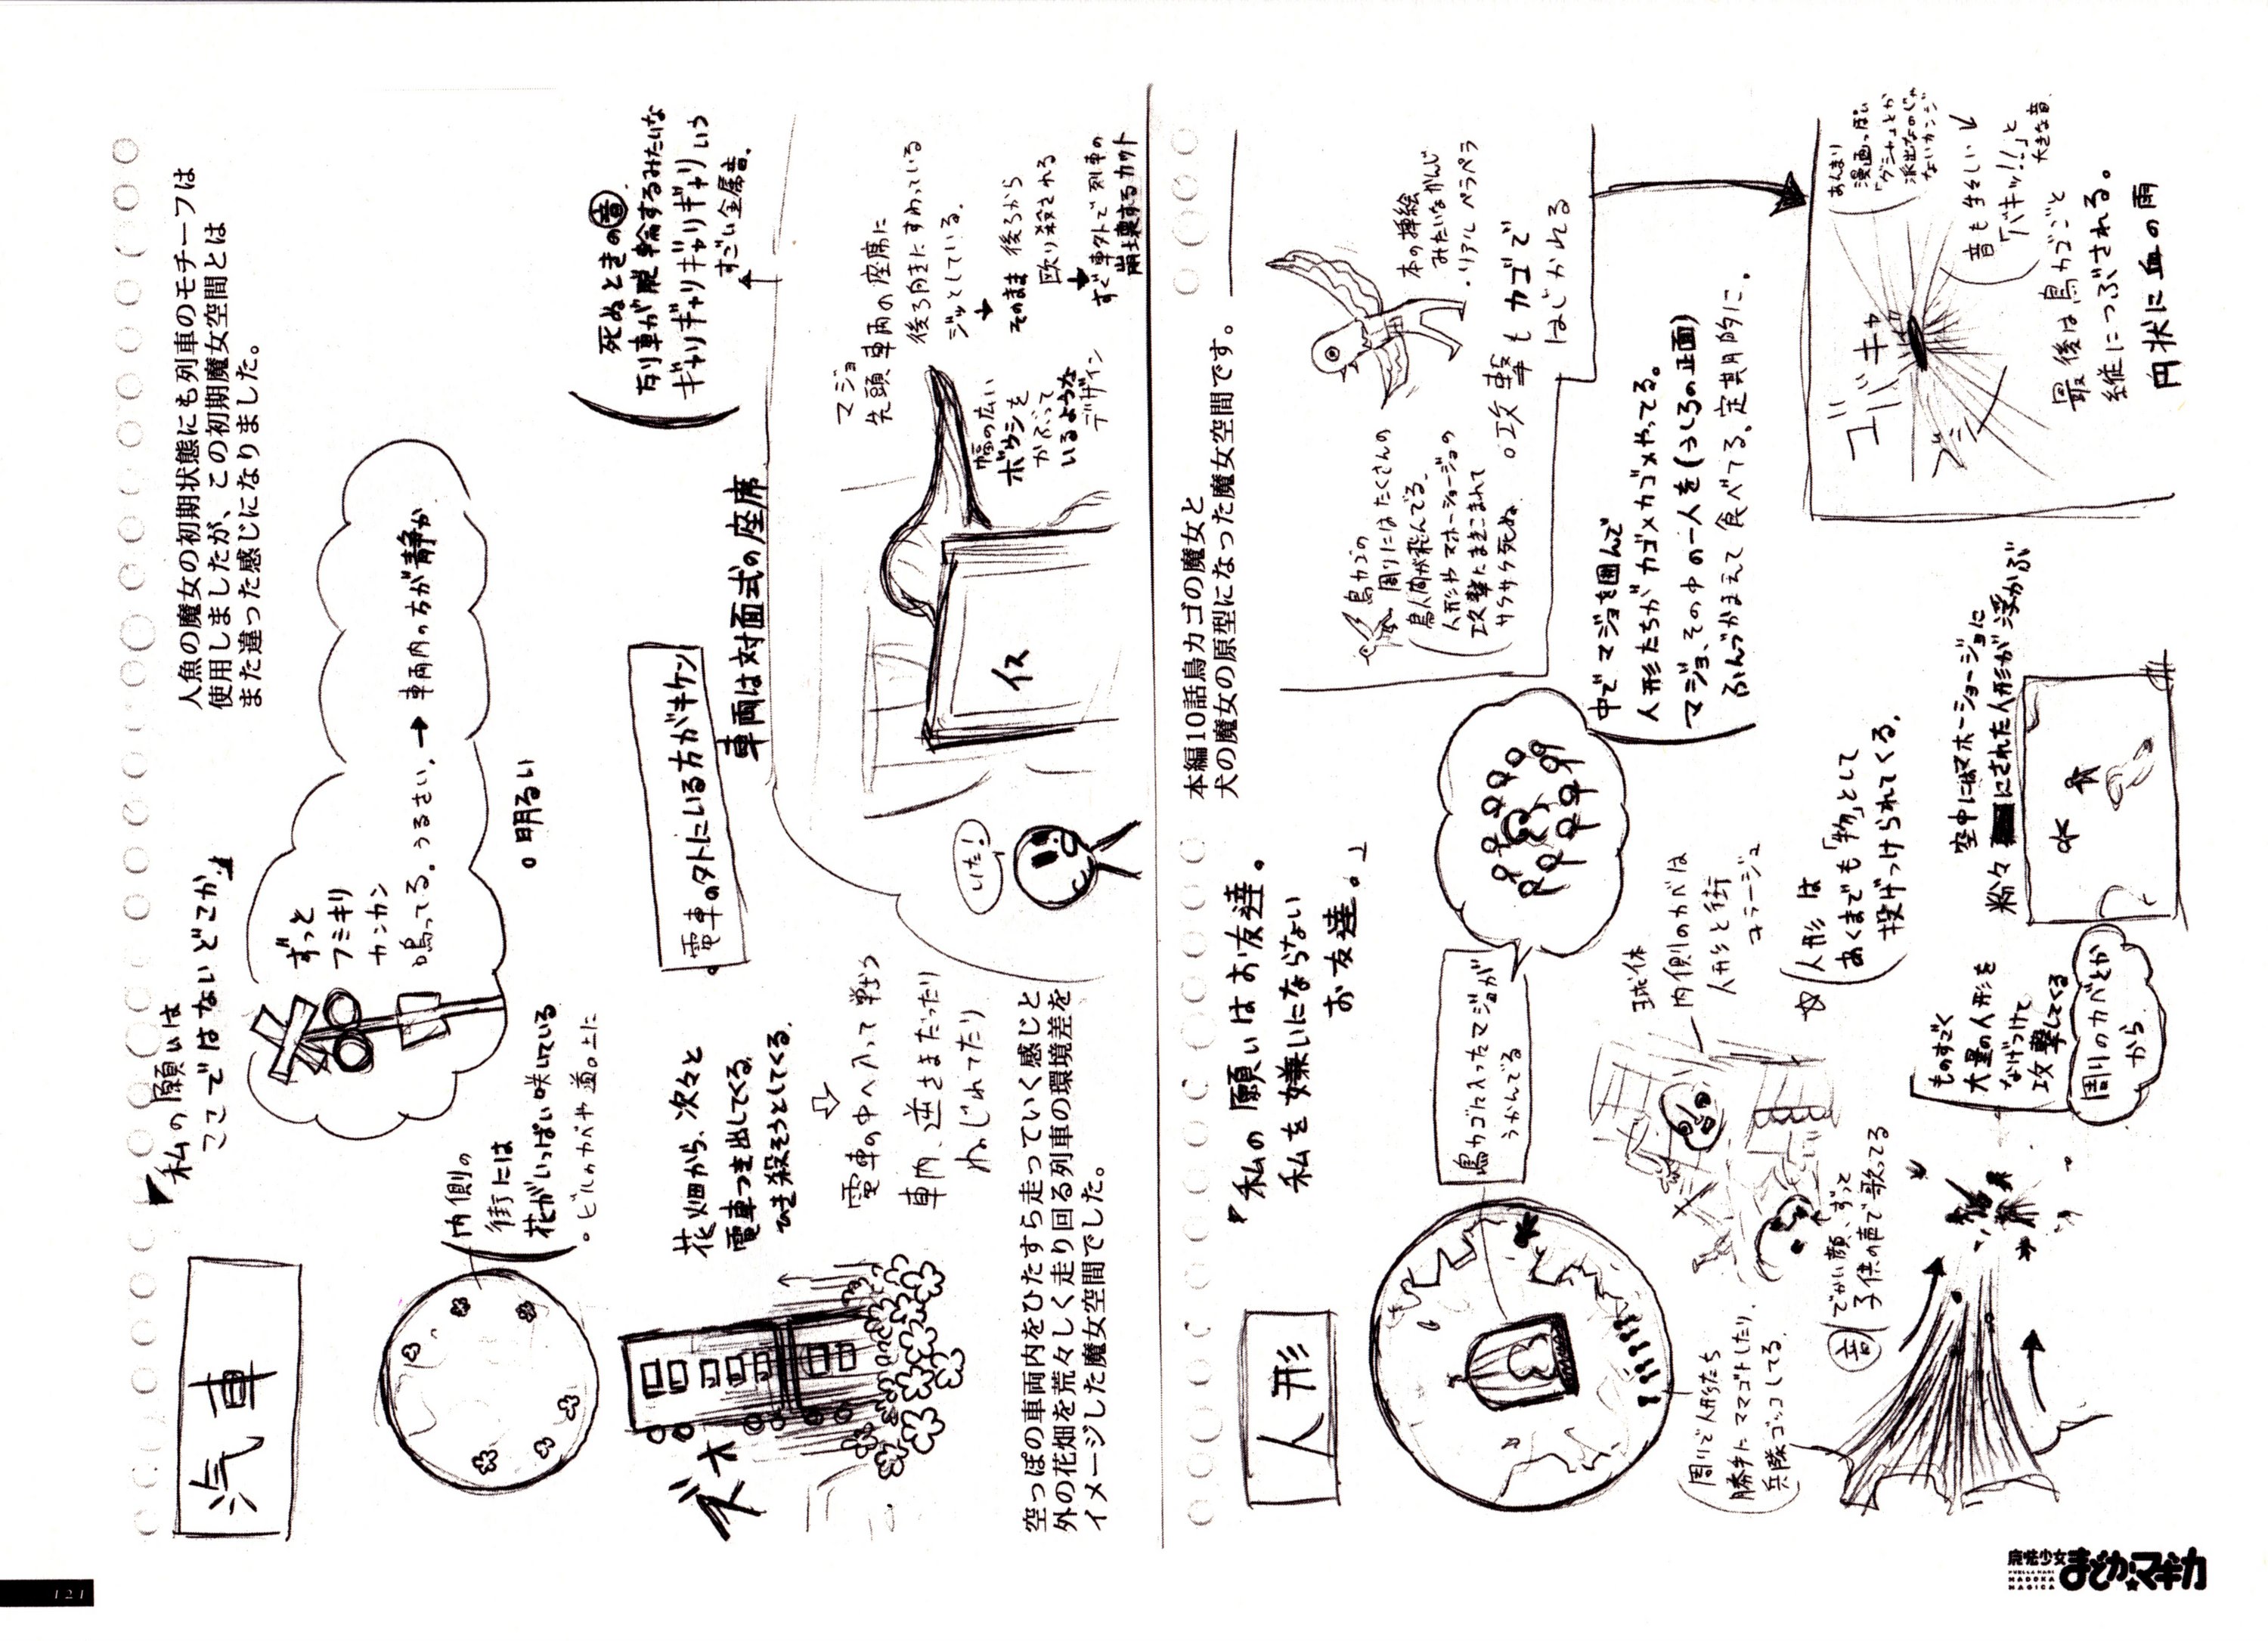 汽車
「私の願いは
ここではないどこか」
人魚の魔女の初期状態にも列車のモチーフは
使用しましたが、この初期魔女空間とは
また違った感じになりました。
内側の
街には
花がいっぱい咲いている
。ビルのカベや道の上に
ずっと
フミキリ
カンカン
鳴ってる。うるさい。→車両内の方が静か
。明るい
ズオ
花畑から、次々と
電車つき出してくる。
ひき殺そうとしてくる。
電車の中へ入って戦う
車内、逆さまだったり
ねじれてたり
。電車の外にいる方がキケン
車両は対面式の座席
死ぬときの音
列車が脱輪するみたいな
ギャリギャリギャリギャリいう
すごい金属音。
いた!
イス
幅の広い
ボウシを
かぶって
いるような
デザイン
マジョ
先頭車両の座席に
後ろ向きにすわっている
ジッとしている。
そのまま後ろから
殴り殺される
すぐ車外で列車の
崩壊するカット
空っぽの車両内をひたすら走っていく感じと
外の花畑を荒々しく走り回る列車の環境差を
イメージした魔女空間でした。
人形
「私の願いはお友達。
私を嫌いにならない
お友達。」
本編10話鳥カゴの魔女と
犬の魔女の原型になった魔女空間です。
鳥カゴに入ったマジョが
うかんでる
周りで人形たち
勝手にママゴトしたり、
兵隊ゴッコしてる。
球体
内側のカベは
人形と街
コラージュ
音
でかい顔、ずっと
子供の声で歌ってる
中でマジョを囲んで
人形たちがカゴメカゴメやってる。
マジョ、その中の一人を(うしろの正面)
ふんづかまえて食べてる、定期的に。
鳥カゴの
周りにはたくさんの
鳥人間が飛んでる。
人形やマホーショージョの
攻撃にまきこまれて
サクサク死ぬ
本の挿絵
みたいなかんじ
・リアル ペラペラ
。攻撃もカゴで
はじかれる
人形は
あくまでも「物」として
投げつけられてくる。
ものすごく
大量の人形を
なげつけて
攻撃してくる
周りのカベとか
から
空中にはマホーショージョに
粉々にされた人形が浮かぶ
ゴバキャ
あんまり
漫画っぽい
「グシャ」とか
派出なのじゃ
ないカンジ
音も生々しい
「バキッ!!」と
大きな音
最後は鳥カゴごと
縦につぶされる。
円状に血の雨
魔法少女
まどか☆マギカ
PUELLA MAGI
MADOKA
MAGICA
121